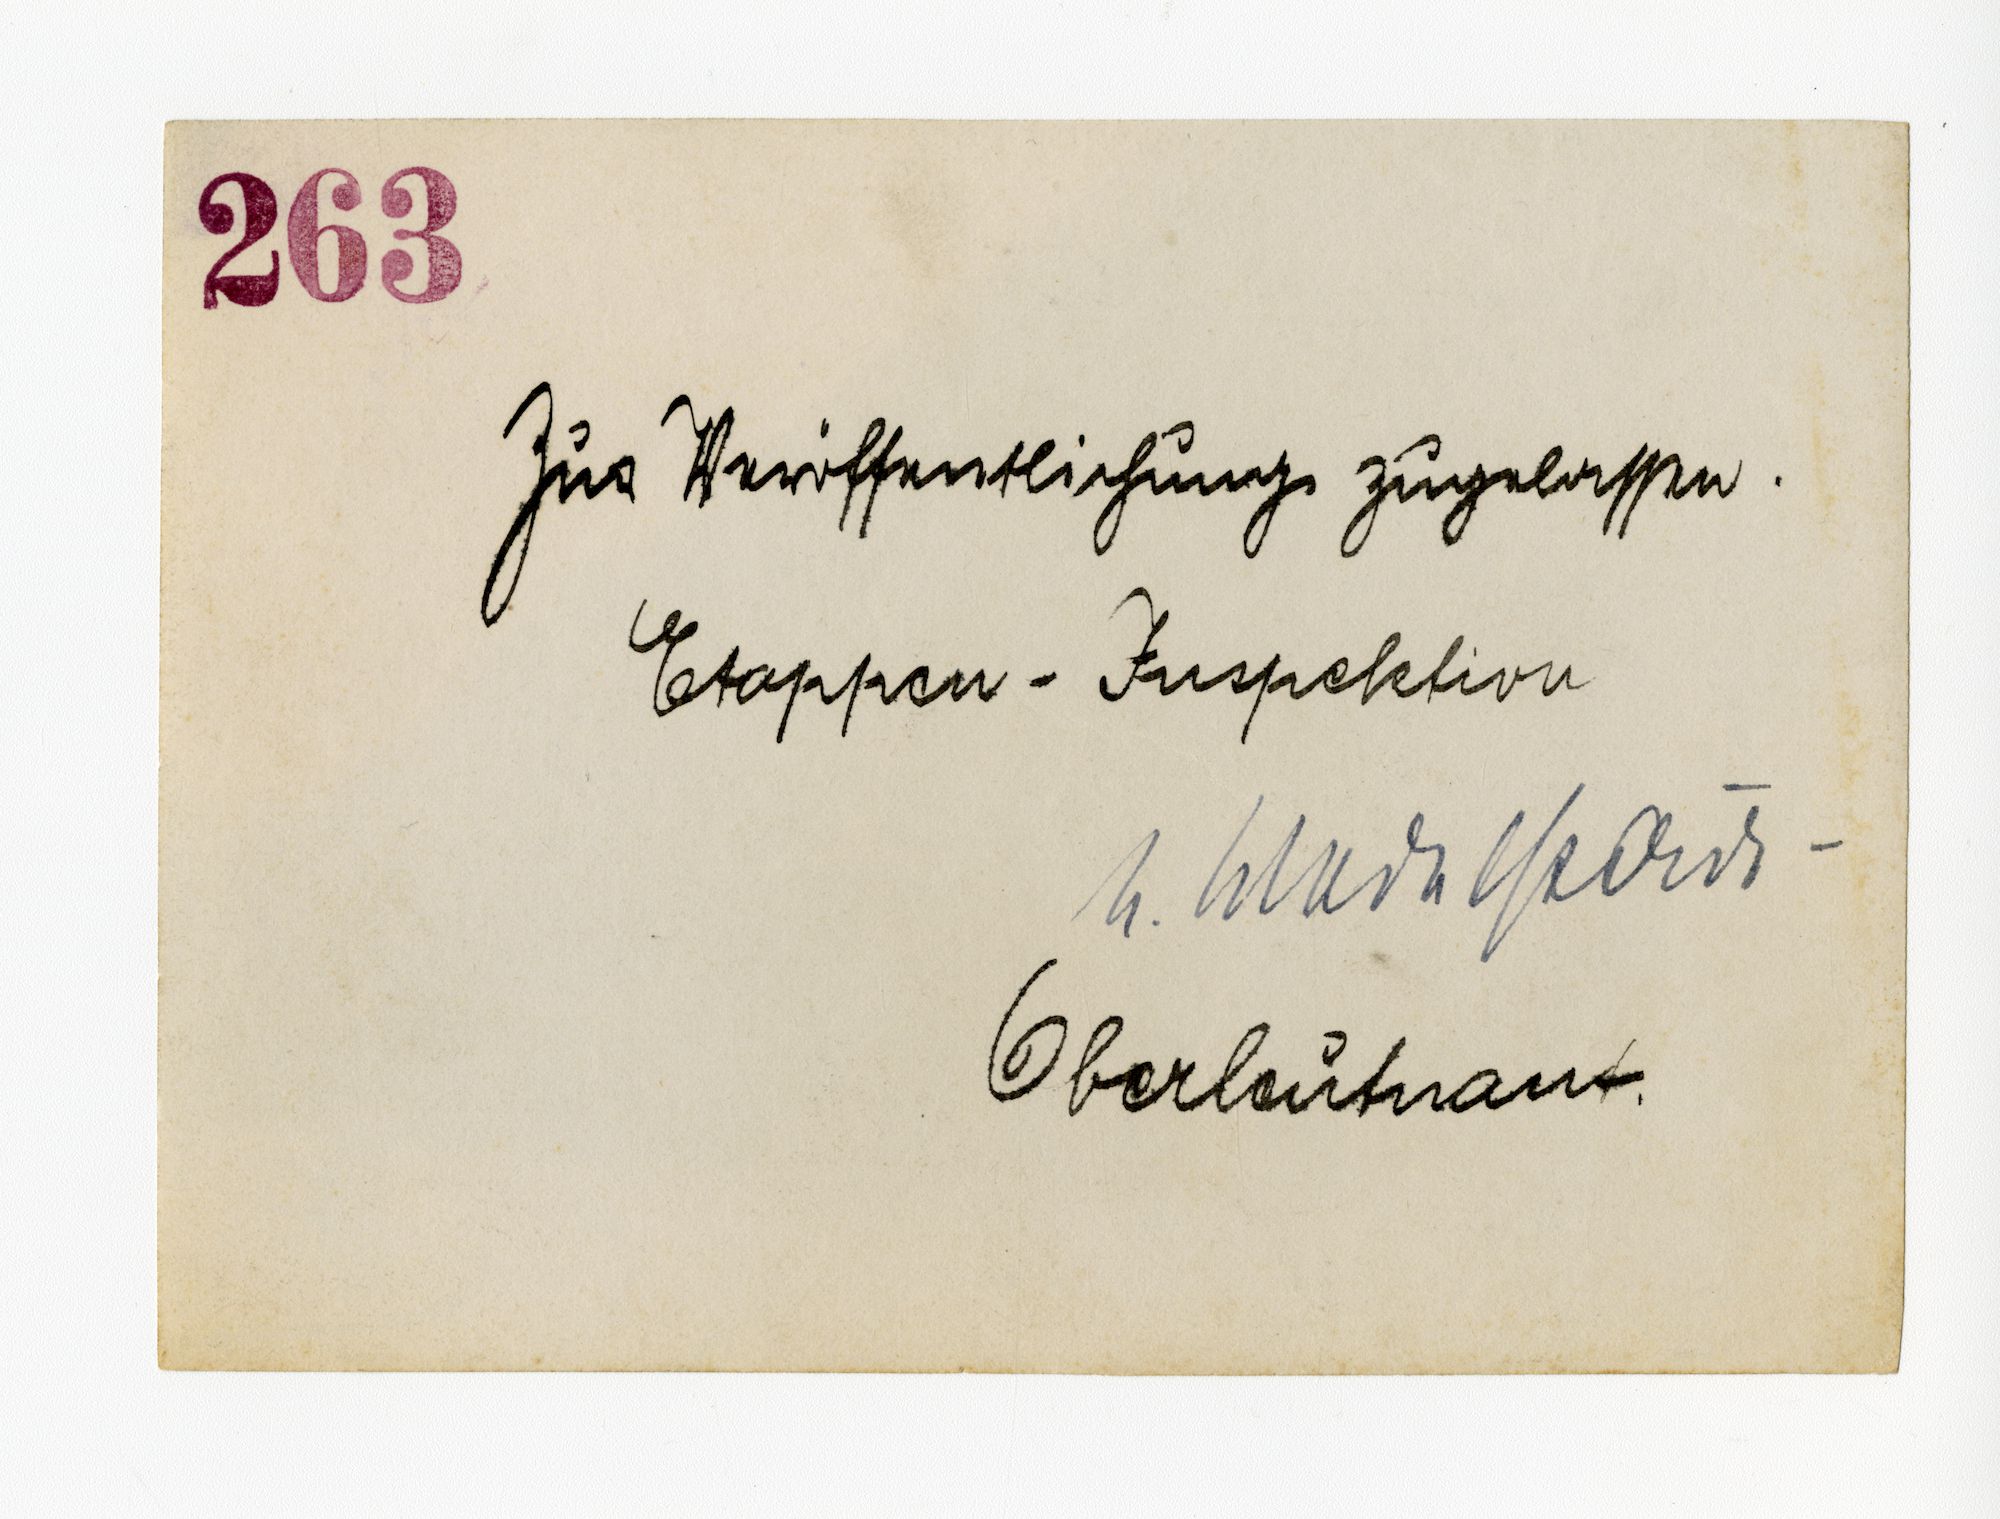 263
Zur Veröffentlichung zugelassen.
Etappen-Inspektion
Oberleutnant.